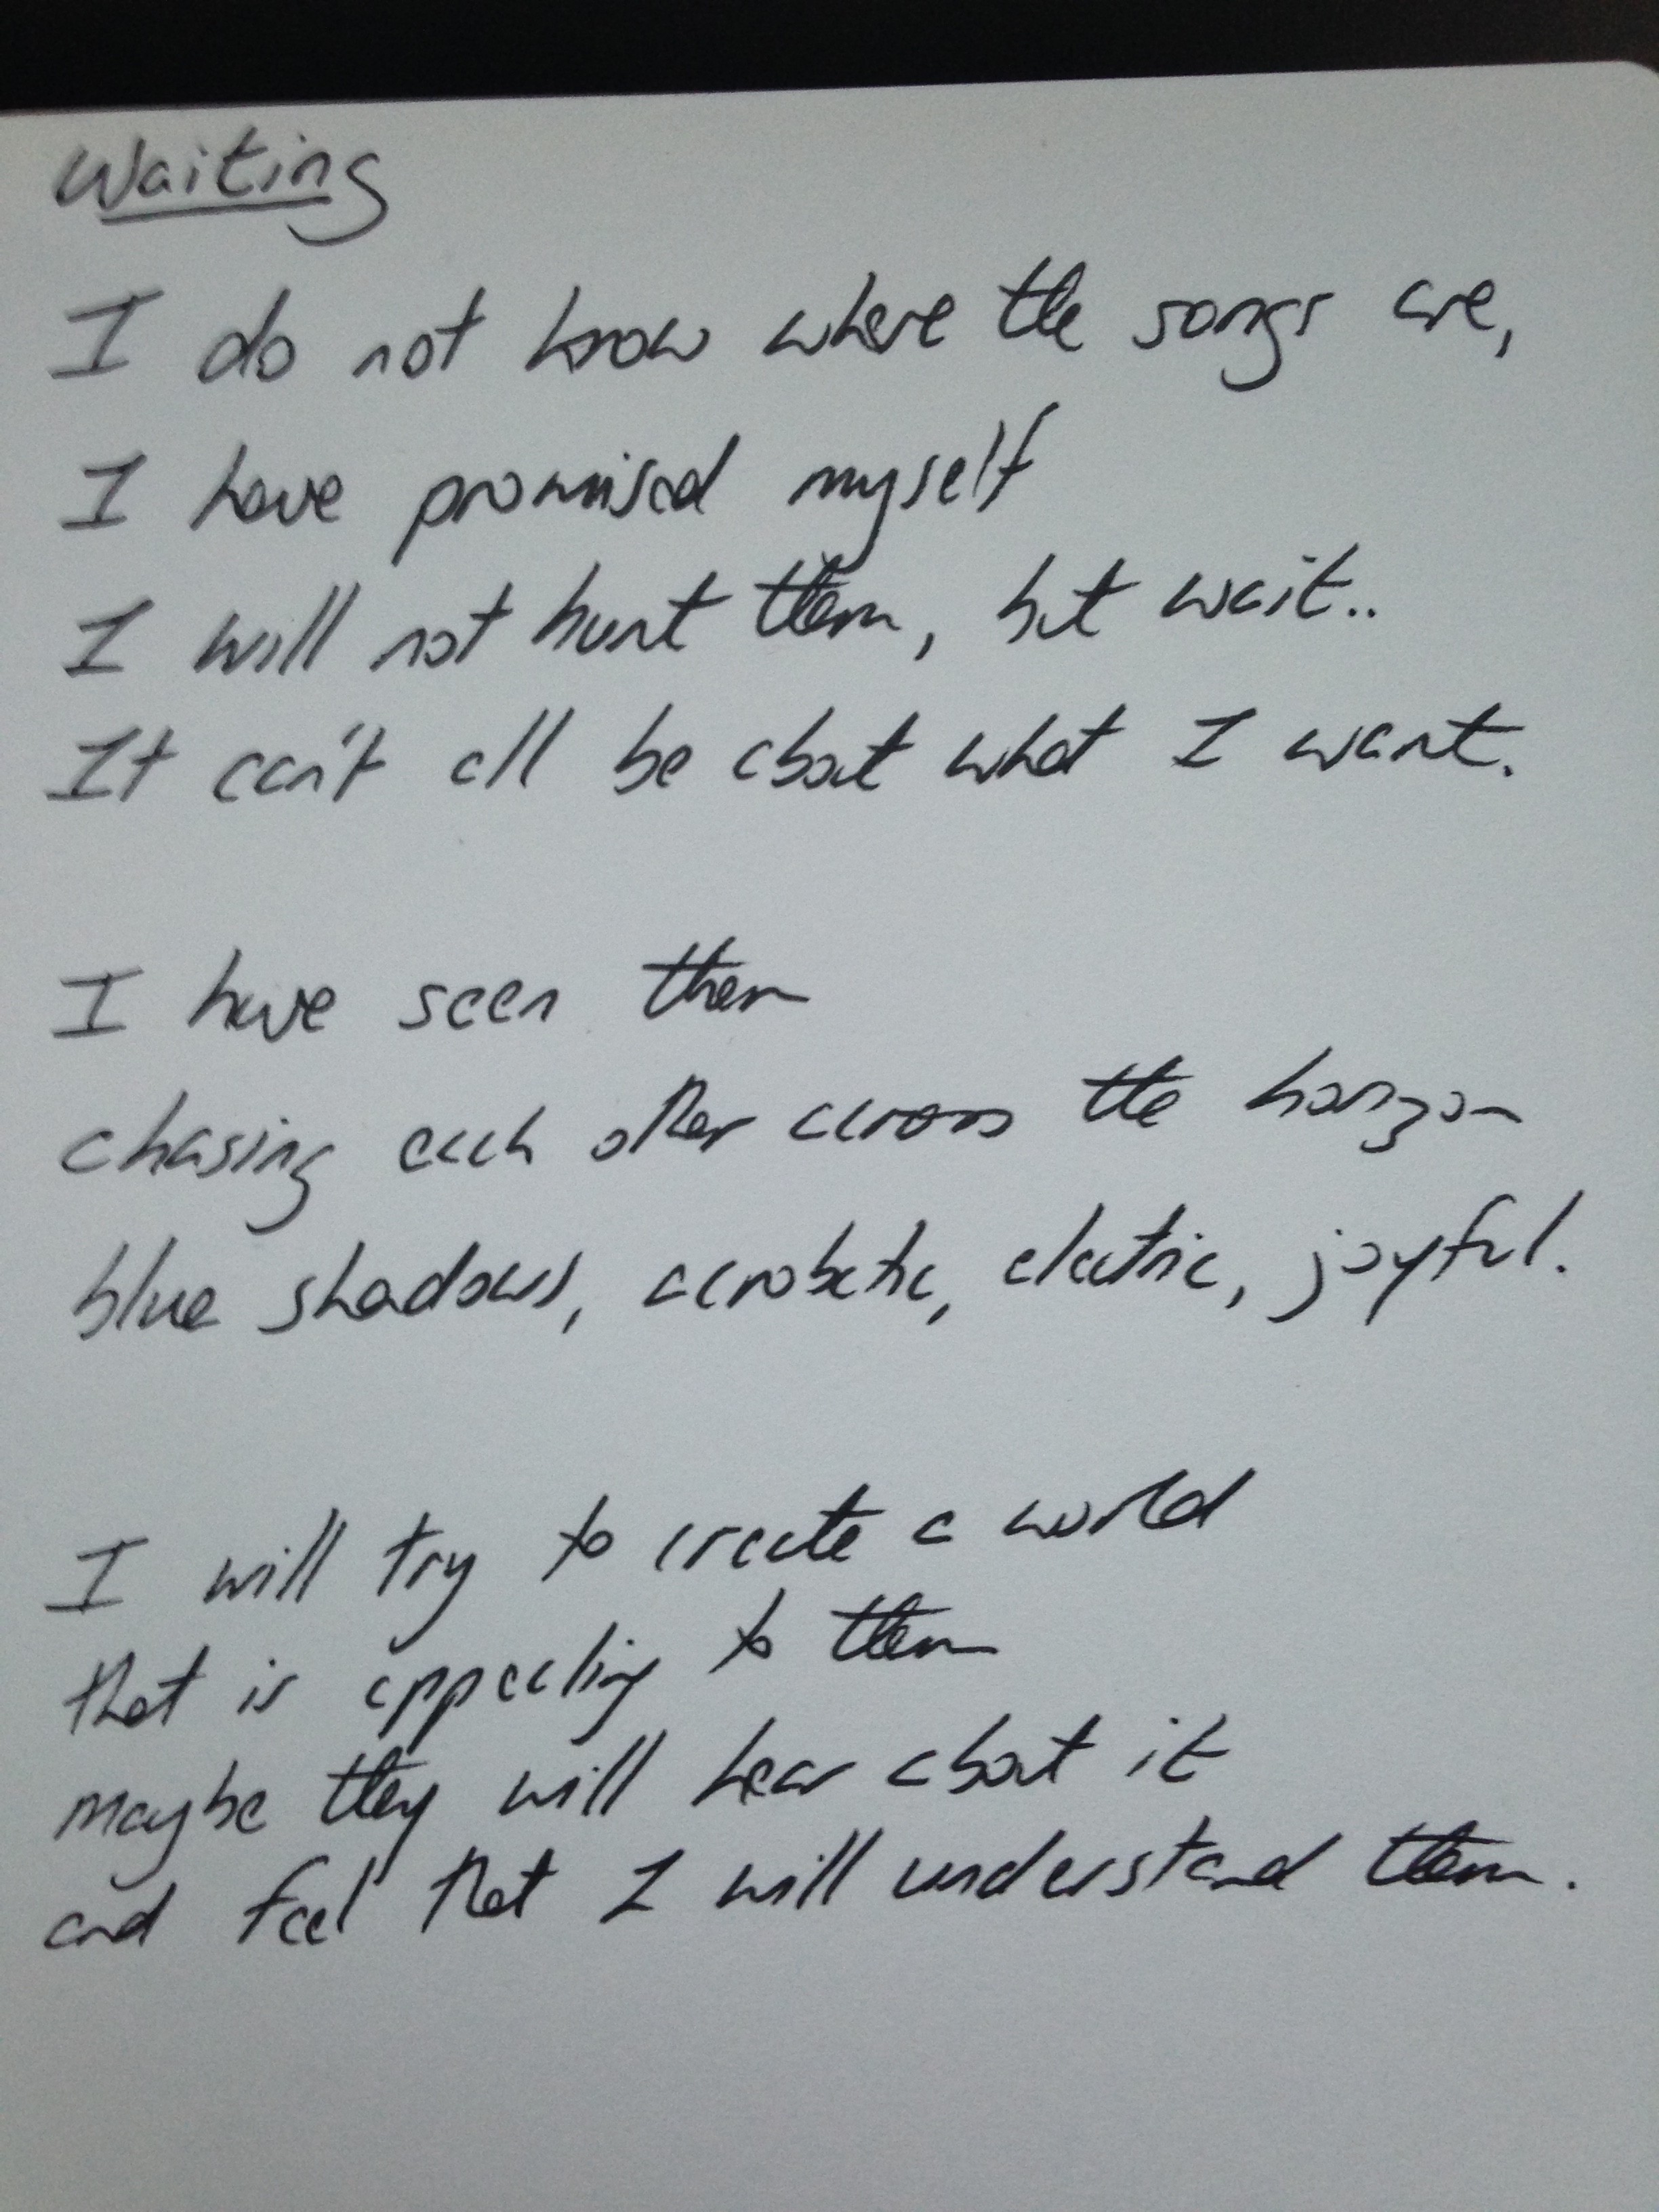 Waiting
I do not know where the songs are,
I have promised myself
I will not hunt them, but wait..
It can't all be about what I want.
I have seen them
chasing each other across the horizon
blue shadows, acrobatic, electric, joyful.
I will try to create a world
that is appealing to them
maybe they will hear about it
and feel that I will understand them.